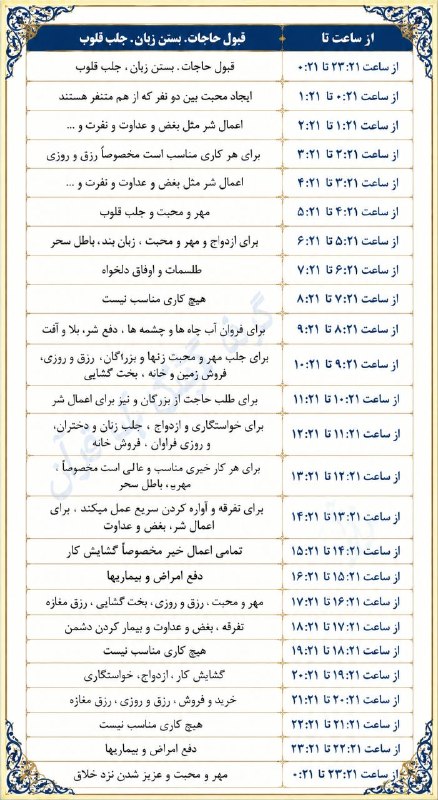 از ساعت تا
قبول حاجات. بستن زبان. جلب قلوب
از ساعت ۲۳:۲۱ تا ۰:۲۱
قبول حاجات. بستن زبان ، جلب قلوب
از ساعت ۰:۲۱ تا ۱:۲۱
ایجاد محبت بین دو نفر که از هم متنفر هستند
از ساعت ۱:۲۱ تا ۲:۲۱
اعمال شر مثل بغض و عداوت و نفرت و ...
از ساعت ۲:۲۱ تا ۳:۲۱
برای هر کاری مناسب است مخصوصاً رزق و روزی
از ساعت ۳:۲۱ تا ۴:۲۱
اعمال شر مثل بغض و عداوت و نفرت و ...
از ساعت ۴:۲۱ تا ۵:۲۱
مهر و محبت و جلب قلوب
از ساعت ۵:۲۱ تا ۶:۲۱
برای ازدواج و مهر و محبت ، زبان بند، باطل سحر
از ساعت ۶:۲۱ تا ۷:۲۱
طلسمات و اوفاق دلخواه
از ساعت ۷:۲۱ تا ۸:۲۱
هیچ کاری مناسب نیست
از ساعت ۸:۲۱ تا ۹:۲۱
برای فروان آب چاه ها و چشمه ها ، دفع شر، بلا و آفت
از ساعت ۹:۲۱ تا ۱۰:۲۱
برای جلب مهر و محبت زنها و بزرگان، رزق و روزی،
فروش زمین و خانه ، بخت گشایی
از ساعت ۱۰:۲۱ تا ۱۱:۲۱
برای طلب حاجت از بزرگان و نیز برای اعمال شر
از ساعت ۱۱:۲۱ تا ۱۲:۲۱
برای خواستگاری و ازدواج ، جلب زنان و دختران،
و روزی فراوان ، فروش خانه
از ساعت ۱۲:۲۱ تا ۱۳:۲۱
برای هر کار خیری مناسب و عالی است مخصوصاً
مهریه، باطل سحر
از ساعت ۱۳:۲۱ تا ۱۴:۲۱
برای تفرقه و آواره کردن سریع عمل میکند ، برای
اعمال شر، بغض و عداوت
از ساعت ۱۴:۲۱ تا ۱۵:۲۱
تمامی اعمال خیر مخصوصاً گشایش کار
از ساعت ۱۵:۲۱ تا ۱۶:۲۱
دفع امراض و بیماریها
از ساعت ۱۶:۲۱ تا ۱۷:۲۱
مهر و محبت ، رزق و روزی، بخت گشایی ، رزق مغازه
از ساعت ۱۷:۲۱ تا ۱۸:۲۱
تفرقه ، بغض و عداوت و بیمار کردن دشمن
از ساعت ۱۸:۲۱ تا ۱۹:۲۱
هیچ کاری مناسب نیست
از ساعت ۱۹:۲۱ تا ۲۰:۲۱
گشایش کار ، ازدواج، خواستگاری
از ساعت ۲۰:۲۱ تا ۲۱:۲۱
خرید و فروش ، رزق و روزی ، رزق مغازه
از ساعت ۲۱:۲۱ تا ۲۲:۲۱
هیچ کاری مناسب نیست
از ساعت ۲۲:۲۱ تا ۲۳:۲۱
دفع امراض و بیماریها
از ساعت ۲۳:۲۱ تا ۰:۲۱
مهر و محبت و عزیز شدن نزد خلاق